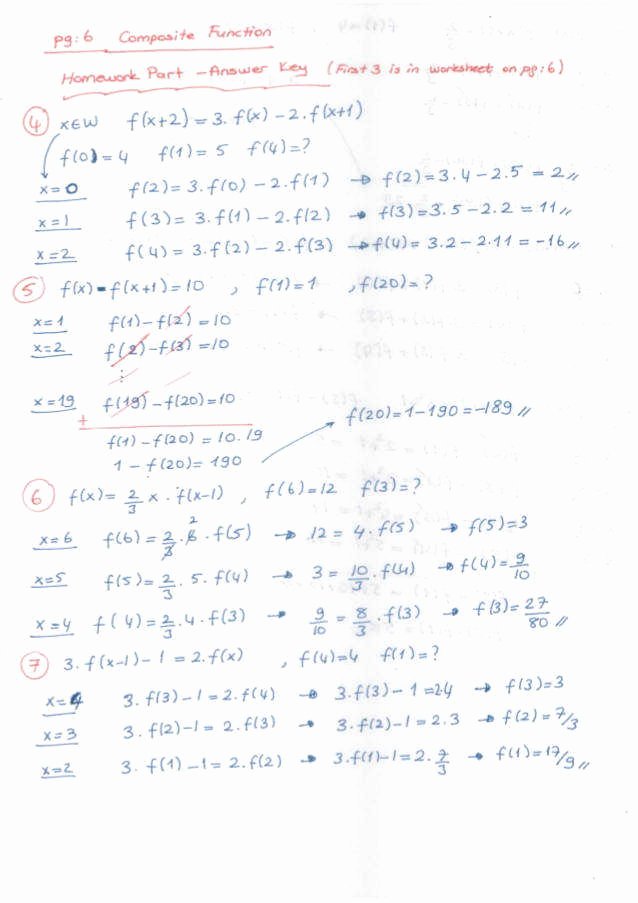 pg:6 Composite Function
Homework Part - Answer Key (First 3 is in worksheet on pg:6)
4 x∈W f(x+2) = 3. f(x) - 2. f(x+1)
f(0) = 4 f(1) = 5 f(4) = ?
x=0 f(2) = 3. f(0) - 2. f(1) → f(2) = 3.4 - 2.5 = 2 //
x=1 f(3) = 3. f(1) - 2. f(2) → f(3) = 3.5 - 2.2 = 11 //
x=2 f(4) = 3. f(2) - 2. f(3) → f(4) = 3.2 - 2.11 = -16 //
5 f(x) - f(x+1) = 10 , f(1) = 1 , f(20) = ?
x=1 f(1) - f(2) = 10
x=2 f(2) - f(3) = 10
⋮
x=19 f(19) - f(20) = 10
+
f(1) - f(20) = 10.19
1 - f(20) = 190
f(20) = 1 - 190 = -189 //
6 f(x) = 2/3 x . f(x-1) , f(6) = 12 f(3) = ?
x=6 f(6) = 2/3 . 6 2 . f(5) → 12 = 4. f(5) → f(5) = 3
x=5 f(5) = 2/3 . 5. f(4) → 3 = 10/3 . f(4) → f(4) = 9/10
x=4 f(4) = 2/3 . 4. f(3) → 9/10 = 8/3 . f(3) → f(3) = 27/80 //
7 3. f(x-1) - 1 = 2. f(x) , f(4) = 4 f(1) = ?
x=4 3. f(3) - 1 = 2. f(4) → 3. f(3) - 1 = 2.4 → f(3) = 3
x=3 3. f(2) - 1 = 2. f(3) → 3. f(2) - 1 = 2.3 → f(2) = 7/3
x=2 3. f(1) - 1 = 2. f(2) → 3. f(1) - 1 = 2. 7/3 → f(1) = 17/9 //